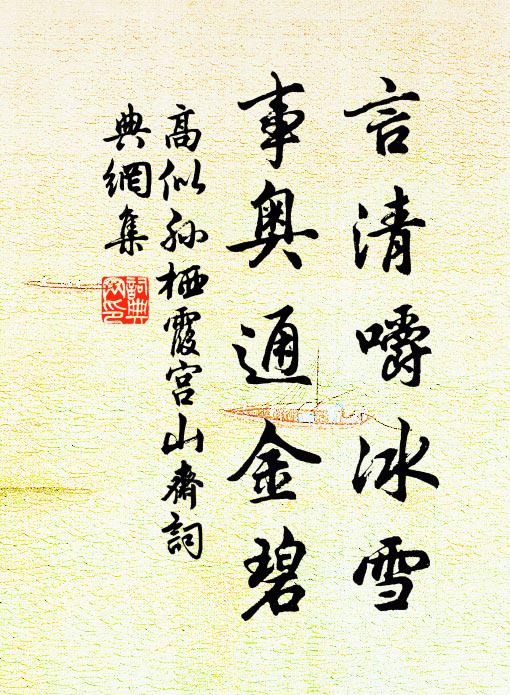 言清嚼冰雪
事奥通金碧
高似孙栖霞宫山斋词
典網集
詞典網印